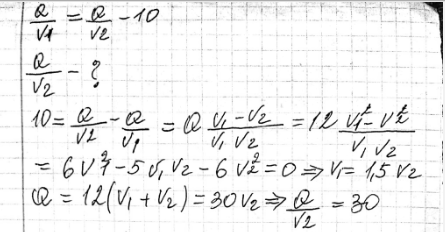 Q/V1 = Q/V2 - 10
Q/V2 - ?
10 = Q/V2 - Q/V1 = Q (V1 - V2)/(V1 V2) = 12 (V1² - V2²)/(V1 V2)
= 6V1² - 5V1V2 - 6V2² = 0 ⇒ V1 = 1,5 V2
Q = 12(V1 + V2) = 30V2 ⇒ Q/V2 = 30